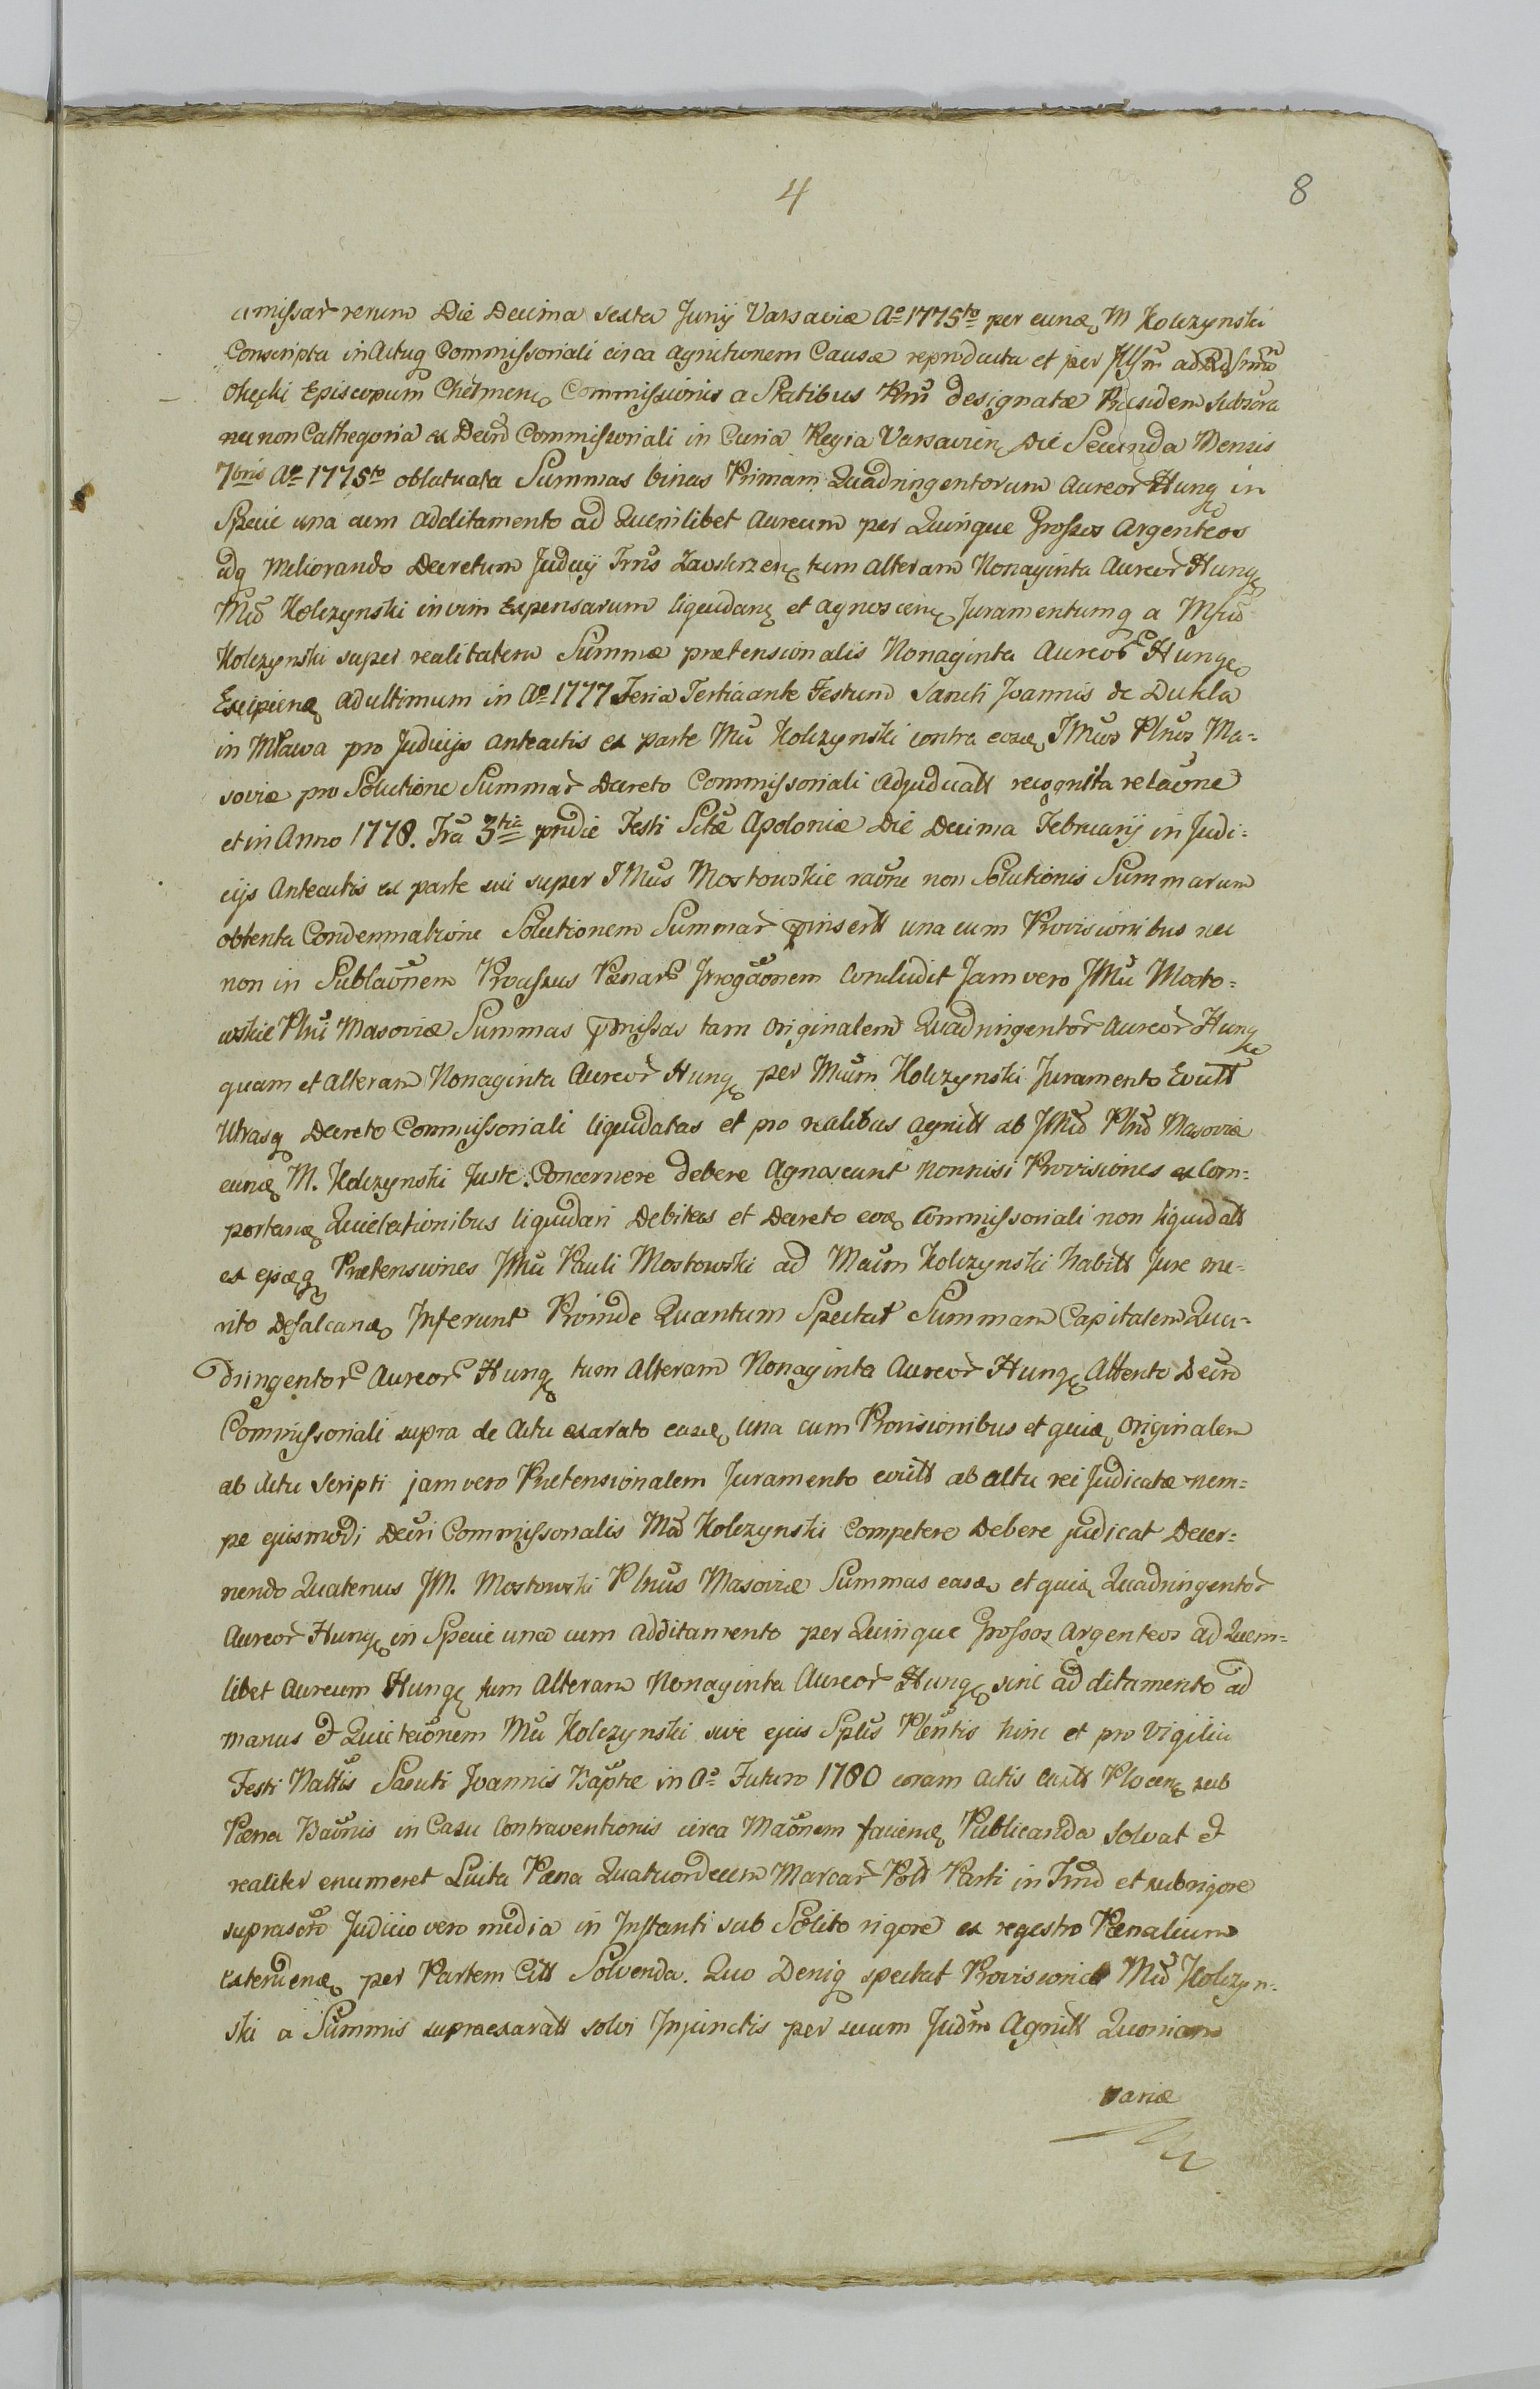 4
8
amissar rerum Die Decima sexta Junij Varsaviæ Aº 1775to per eund M Kolczynski
Conscripta in Actuq Commissoriali circa agnitionem Causæ reproducta et per Illm ad Rdssmu
Okęcki Episcopum Chełmens Commissionis a Statibus Rni designatæ Præsidem subscra
nec non Cathegoria ex Decro Commissoriali in Curia Regia Varsavien Die Secunda Mensis
7bris Aº 1775to oblatuata Summas binas Primam Quadringentorum Aureor Hung in
Specie una cum Additamento ad Quemlibet Aureum per Quinque Grossos Argenteos
idq Meliorando Decretum Judicij Trris Zawskrzen tum alteram Nonaginta Aureor Hung
Mfco Kolczynski in vim Expensarum liquidan et agnoscen Juramentumq a Mfco
Kolczynski super realitatem Summæ prætensionalis Nonaginta Aureor Hung
Excipien ad ultimum in Aº 1777 Feria Tertia ante Festum Sancti Joannis de Dukla
in Mława pro Judicijs anteactis ex parte Mci Kolczynski contra eosd JMcos Plnos Ma-
soviæ pro Solutione Summar Decreto Commissoriali adjudicatt recognita relaõne
et in Anno 1778. Fra 3tia pridie Festi Sctæ Apoloniæ Die Decima Februarij in Judi-
cijs Anteactis ex parte sui super JMcos Mostowskie raõne non Solutionis Summarum
obtenta Condemnatione Solutionem Summar pinsertt una cum Provisionibus nec
non in Sublaõnem Processus Pœnar Irrogaõnem Concludit Jam vero JMci Mosto-
wskie Plni Masoviæ Summas pmissas tam Originalem Quadringentor Aureor Hung
quam et alteram Nonaginta Aureor Hung per Mcum Kolczynski Juramento Evictt
Utrasq Decreto Commissoriali liquidatas et pro realibus agnitt ab JMco Plno Masoviæ
eund M. Kolczynski Juste Concernere debere Agnoscunt nonnisi Provisiones ex Com-
portand Quietationibus liquidari Debitas et Decreto eod Commissoriali non liquidatt
ex eisq Prætensiones JMci Pauli Mostowski ad Mcum Kolczynski habitt Jure me-
rito Defalcand Inferunt Proinde Quantum Spectat Summam Capitalem Qua-
dringentor Aureor Hung tum Alteram Nonaginta Aureor Hung Attento Decro
Commissoriali supra de Actu exarato easd una cum Provisionibus et quid Originalem
ab Actu Scripti jam vero Prætensionalem Juramento evictt ab actu rei Judicatæ nem-
pe ejusmodi Decri Commissorialis Mco Kolczynski Competere Debere judicat Decer-
nendo Quatenus JM. Mostowski Plnus Masoviæ Summas easd et quid Quadringentor
Aureor Hung in Specie una cum Additamento per Quinque Grossos Argenteos ad Quem-
libet Aureum Hung tum Alteram Nonaginta Aureor Hung sine additamento ad
manus et Quietaõnem Mci Kolczynski sive ejus Splis Plentis hinc et pro Vigilia
Festi Nattis Sancti Joannis Baptæ in Aº Futuro 1780 coram Actis Castt Plocen sub
Pœna Baõnis in Casu Contraventionis circa Maõnem faciend Publicanda Solvat et
realiter enumeret Luita Pœna Quatuordecem Marcar Poll Parti in Trmo et sub rigore
suprascro Judicio vero media in Instanti sub Solito rigore ex regestro Pœnalium
extendend per Partem Citt Solvenda. Quo Deniq spectat Provisiones Mco Kolczyn-
ski a Summis supraexaratt solvi Injunctis per suum Judm Agnitt Quoniam
variæ